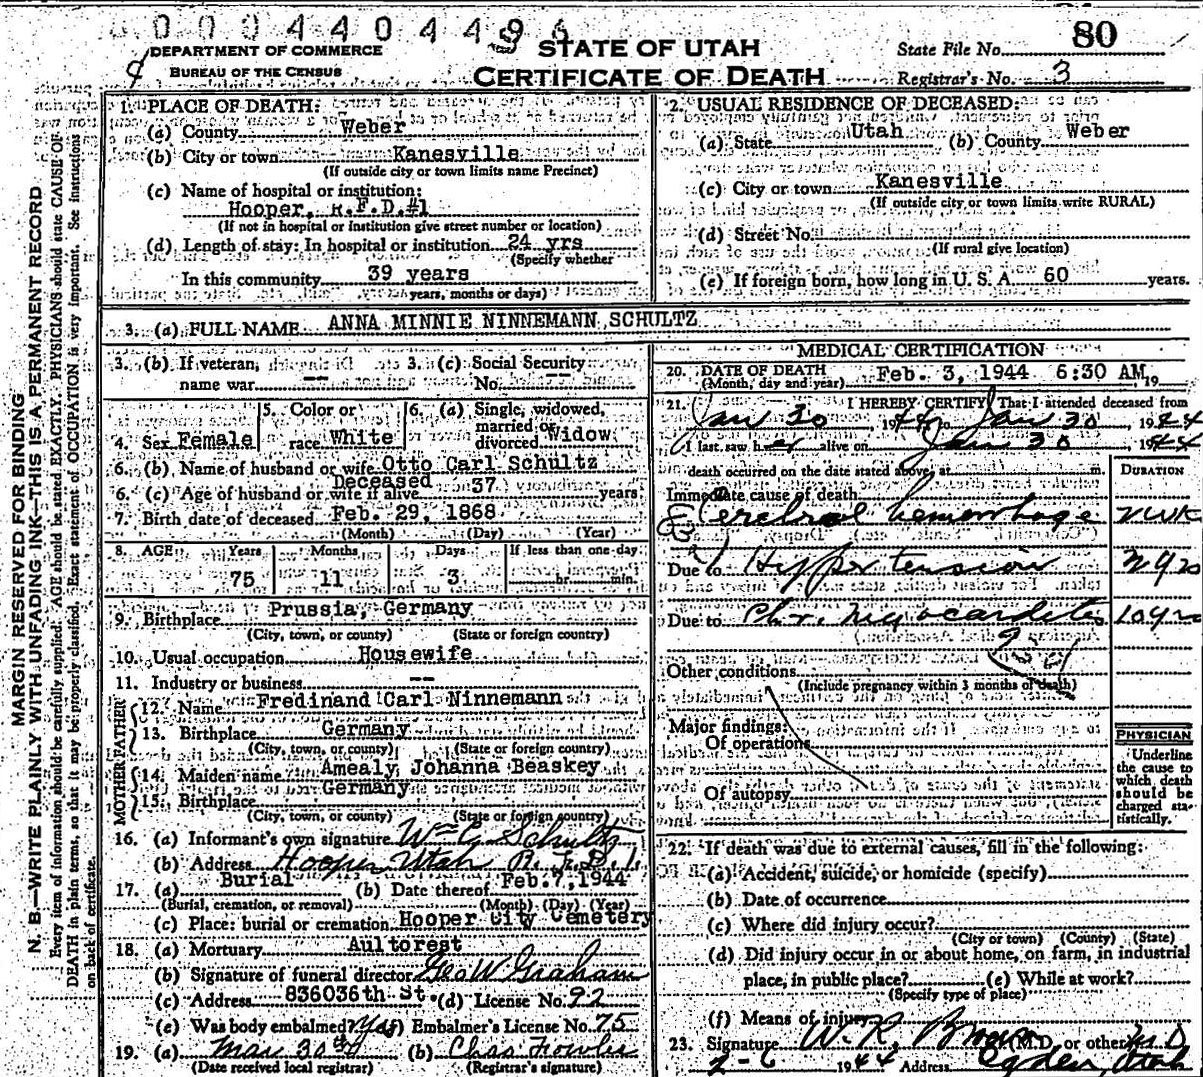 0 0 0 4 4 0 4 4 9
DEPARTMENT OF COMMERCE
BUREAU OF THE CENSUS
STATE OF UTAH
CERTIFICATE OF DEATH
State File No. 80
Registrar's No. 3
MARGIN RESERVED FOR BINDING
N. B.—WRITE PLAINLY WITH UNFADING INK—THIS IS A PERMANENT RECORD
Every item of information should be carefully supplied. AGE should be stated EXACTLY. PHYSICIANS should state CAUSE OF
DEATH in plain terms, so that it may be properly classified. Exact statement of OCCUPATION is very important. See instructions
on back of certificate.
1. PLACE OF DEATH:
(a) County Weber
(b) City or town Kanesville
(If outside city or town limits name Precinct)
(c) Name of hospital or institution:
Hooper, R.F.D.#1
(If not in hospital or institution give street number or location)
(d) Length of stay: In hospital or institution 24 yrs
(Specify whether
In this community 39 years
years, months or days)
2. USUAL RESIDENCE OF DECEASED:
(a) State Utah (b) County Weber
(c) City or town Kanesville
(If outside city or town limits write RURAL)
(d) Street No.
(If rural give location)
(e) If foreign born, how long in U. S. A. 60 years.
3. (a) FULL NAME ANNA MINNIE NINNEMANN SCHULTZ
3. (b) If veteran, 3. (c) Social Security
name war -- No. --
4. Sex Female 5. Color or race White 6. (a) Single, widowed, married or divorced Widow
6. (b) Name of husband or wife Otto Carl Schultz
Deceased 37
6. (c) Age of husband or wife if alive years
7. Birth date of deceased Feb. 29, 1868
(Month) (Day) (Year)
8. AGE Years Months Days If less than one day
75 11 3 hr. min.
9. Birthplace Prussia, Germany
(City, town, or county) (State or foreign country)
10. Usual occupation Housewife
11. Industry or business --
FATHER
12. Name Fredinand Carl Ninnemann
13. Birthplace Germany
(City, town, or county) (State or foreign country)
MOTHER
14. Maiden name Amealy Johanna Beaskey
15. Birthplace Germany
(City, town, or county) (State or foreign country)
16. (a) Informant's own signature Wm C. Schultz
(b) Address Hooper Utah R.F.D.1.
17. (a) Burial (b) Date thereof Feb.7,1944
(Burial, cremation, or removal) (Month) (Day) (Year)
(c) Place: burial or cremation Hooper City Cemetery
18. (a) Mortuary Aultorest
(b) Signature of funeral director Geo W Graham
(c) Address 836036th St. (d) License No. 92
(e) Was body embalmed? Yes (f) Embalmer's License No. 75
19. (a) Mar 30 (b) Chas Fowles
(Date received local registrar) (Registrar's signature)
MEDICAL CERTIFICATION
20. DATE OF DEATH
(Month, day and year) Feb. 3, 1944 6:30 AM, 19
21. I HEREBY CERTIFY That I attended deceased from
Jan 30, 1944 to Jan 30, 1944
I last saw her alive on Jan 30, 1944
death occurred on the date stated above, at m.
DURATION
Immediate cause of death
Cerebral hemorrhage
Due to Hypertension
Due to Chr. Myocarditis 10 yrs
Other conditions
(Include pregnancy within 3 months of death)
Major findings:
Of operations
Of autopsy
PHYSICIAN
Underline
the cause to
which death
should be
charged sta-
tistically.
22. If death was due to external causes, fill in the following:
(a) Accident, suicide, or homicide (specify)
(b) Date of occurrence
(c) Where did injury occur?
(City or town) (County) (State)
(d) Did injury occur in or about home, on farm, in industrial
place, in public place? (e) While at work?
(Specify type of place)
(f) Means of injury
23. Signature W. R. Brown (M.D. or other) M.D.
2-6 1944 Address Ogden, Utah